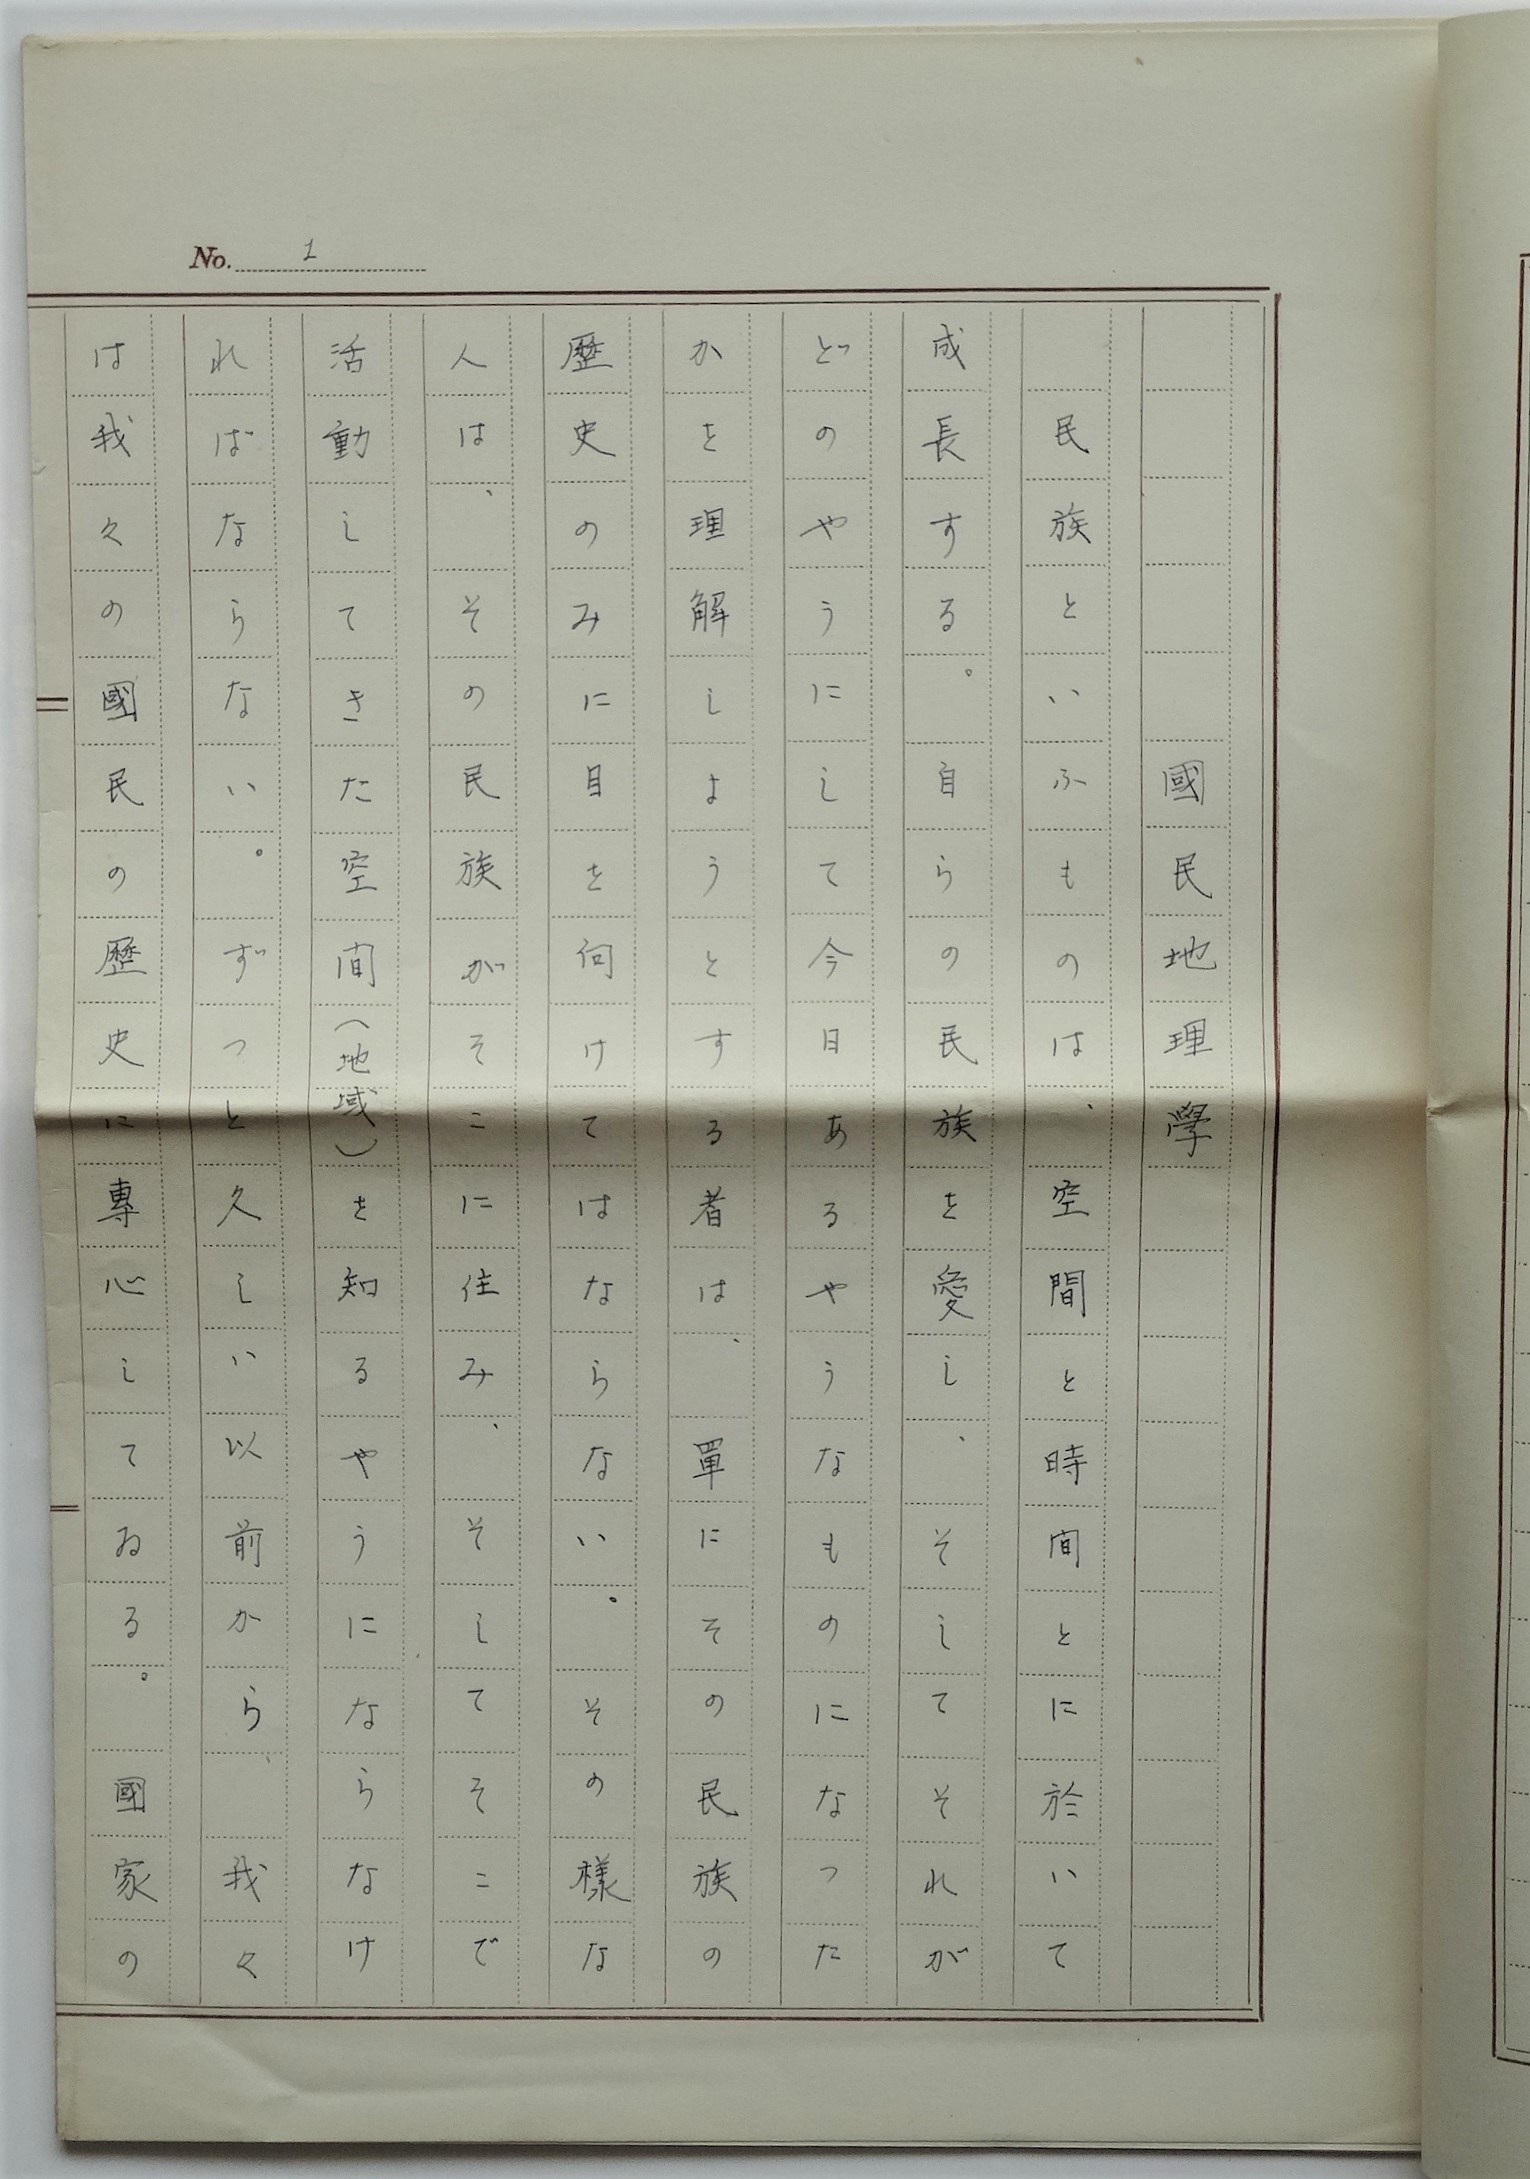 No. 1
國民地理學
民族といふものは、空間と時間とに於いて
成長する。自らの民族を愛し、そしてそれが
どのやうにして今日あるやうなものになつた
かを理解しようとする者は、單にその民族の
歷史のみに目を向けてはならない。その樣な
人は、その民族がそこに住み、そしてそこで
活動してきた空間(地域)を知るやうにならなけ
ればならない。ずつと久しい以前から、我々
は我々の國民の歷史に專心してゐる。國家の